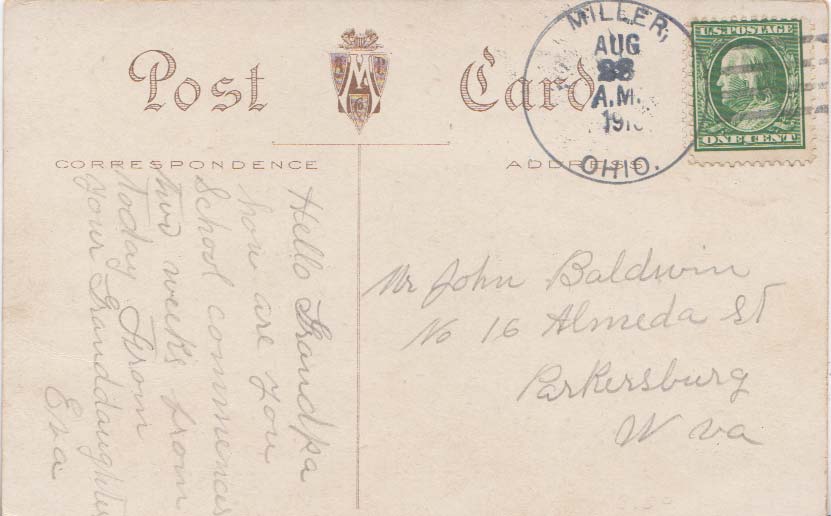 Post Card
CORRESPONDENCE
ADDRESS
MILLER,
AUG
A.M.
OHIO.
U.S. POSTAGE
ONE CENT
Hello Grandpa
how are you
School commences
two weeks from
today From
your Granddaughter
Eva
Mr John Baldwin
No 16 Almeda St
Parkersburg
W va